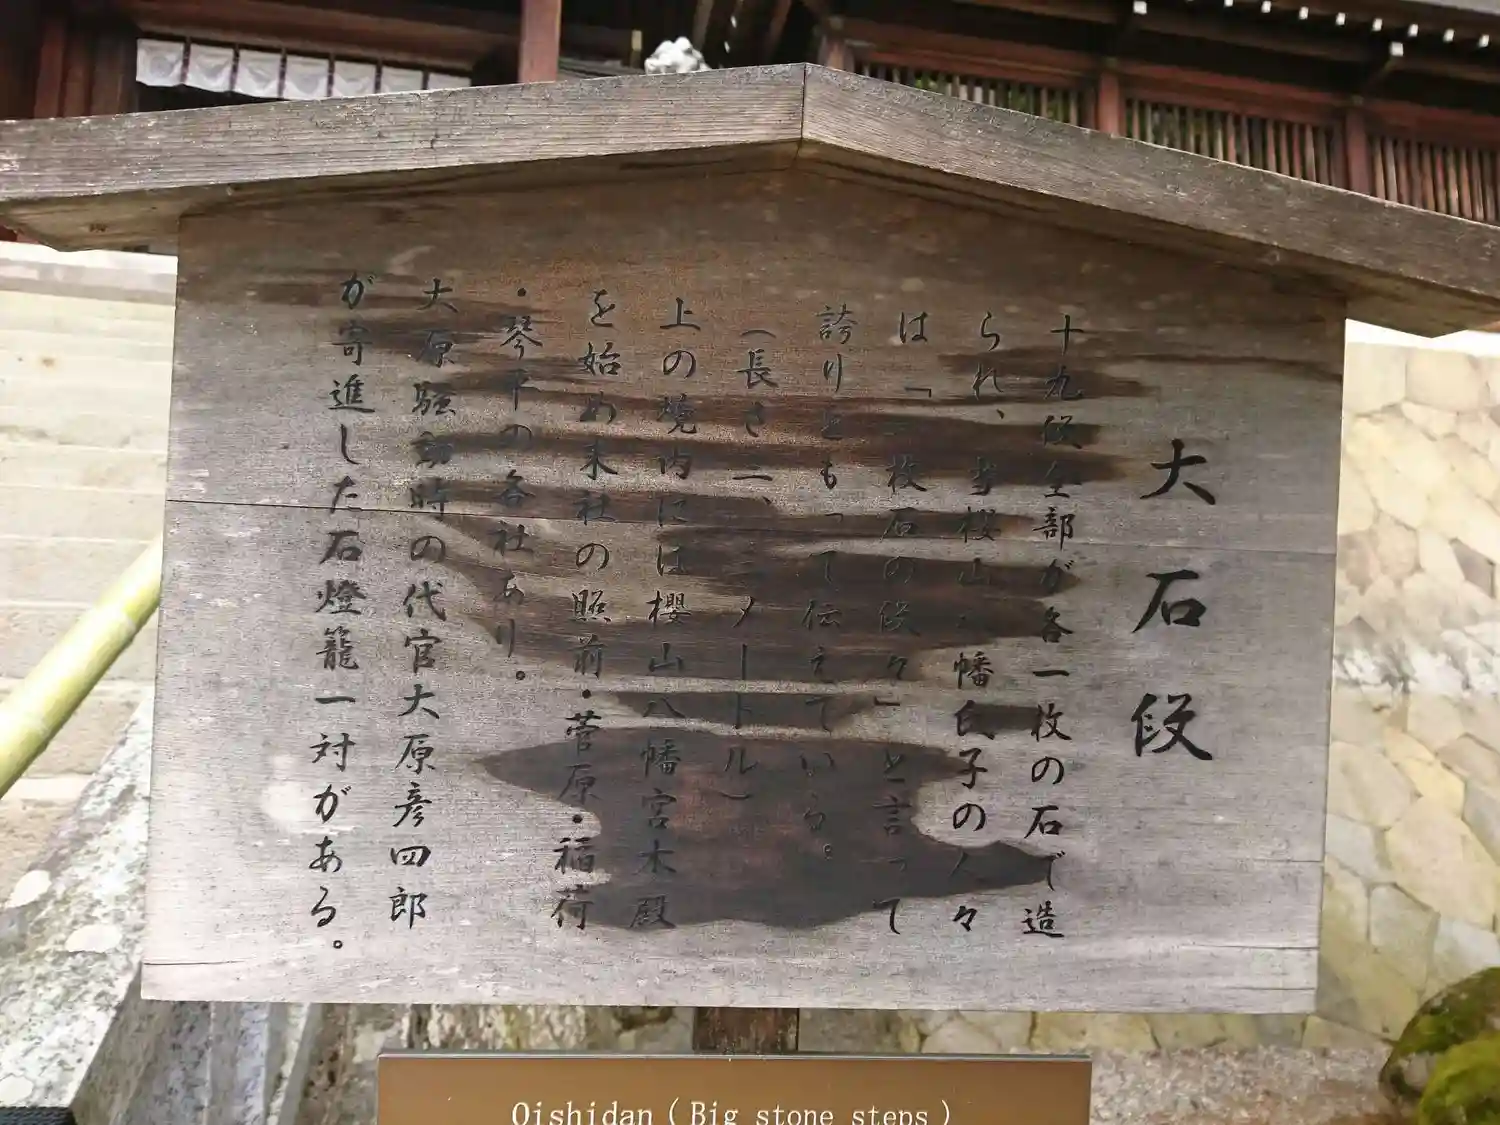 大石段
十九段全部が各一枚の石で造
られ、当桜山八幡氏子の人々
は「一枚石の段々」と言って
誇りとも して伝えている。
（長さ二、二メートル）
上の境内には櫻山八幡宮本殿
を始め末社の照前・菅原・稲荷
・琴平の各社あり。
大原騒動時の代官大原彦四郎
が寄進した石燈籠一対がある。
Oishidan（Big stone steps）